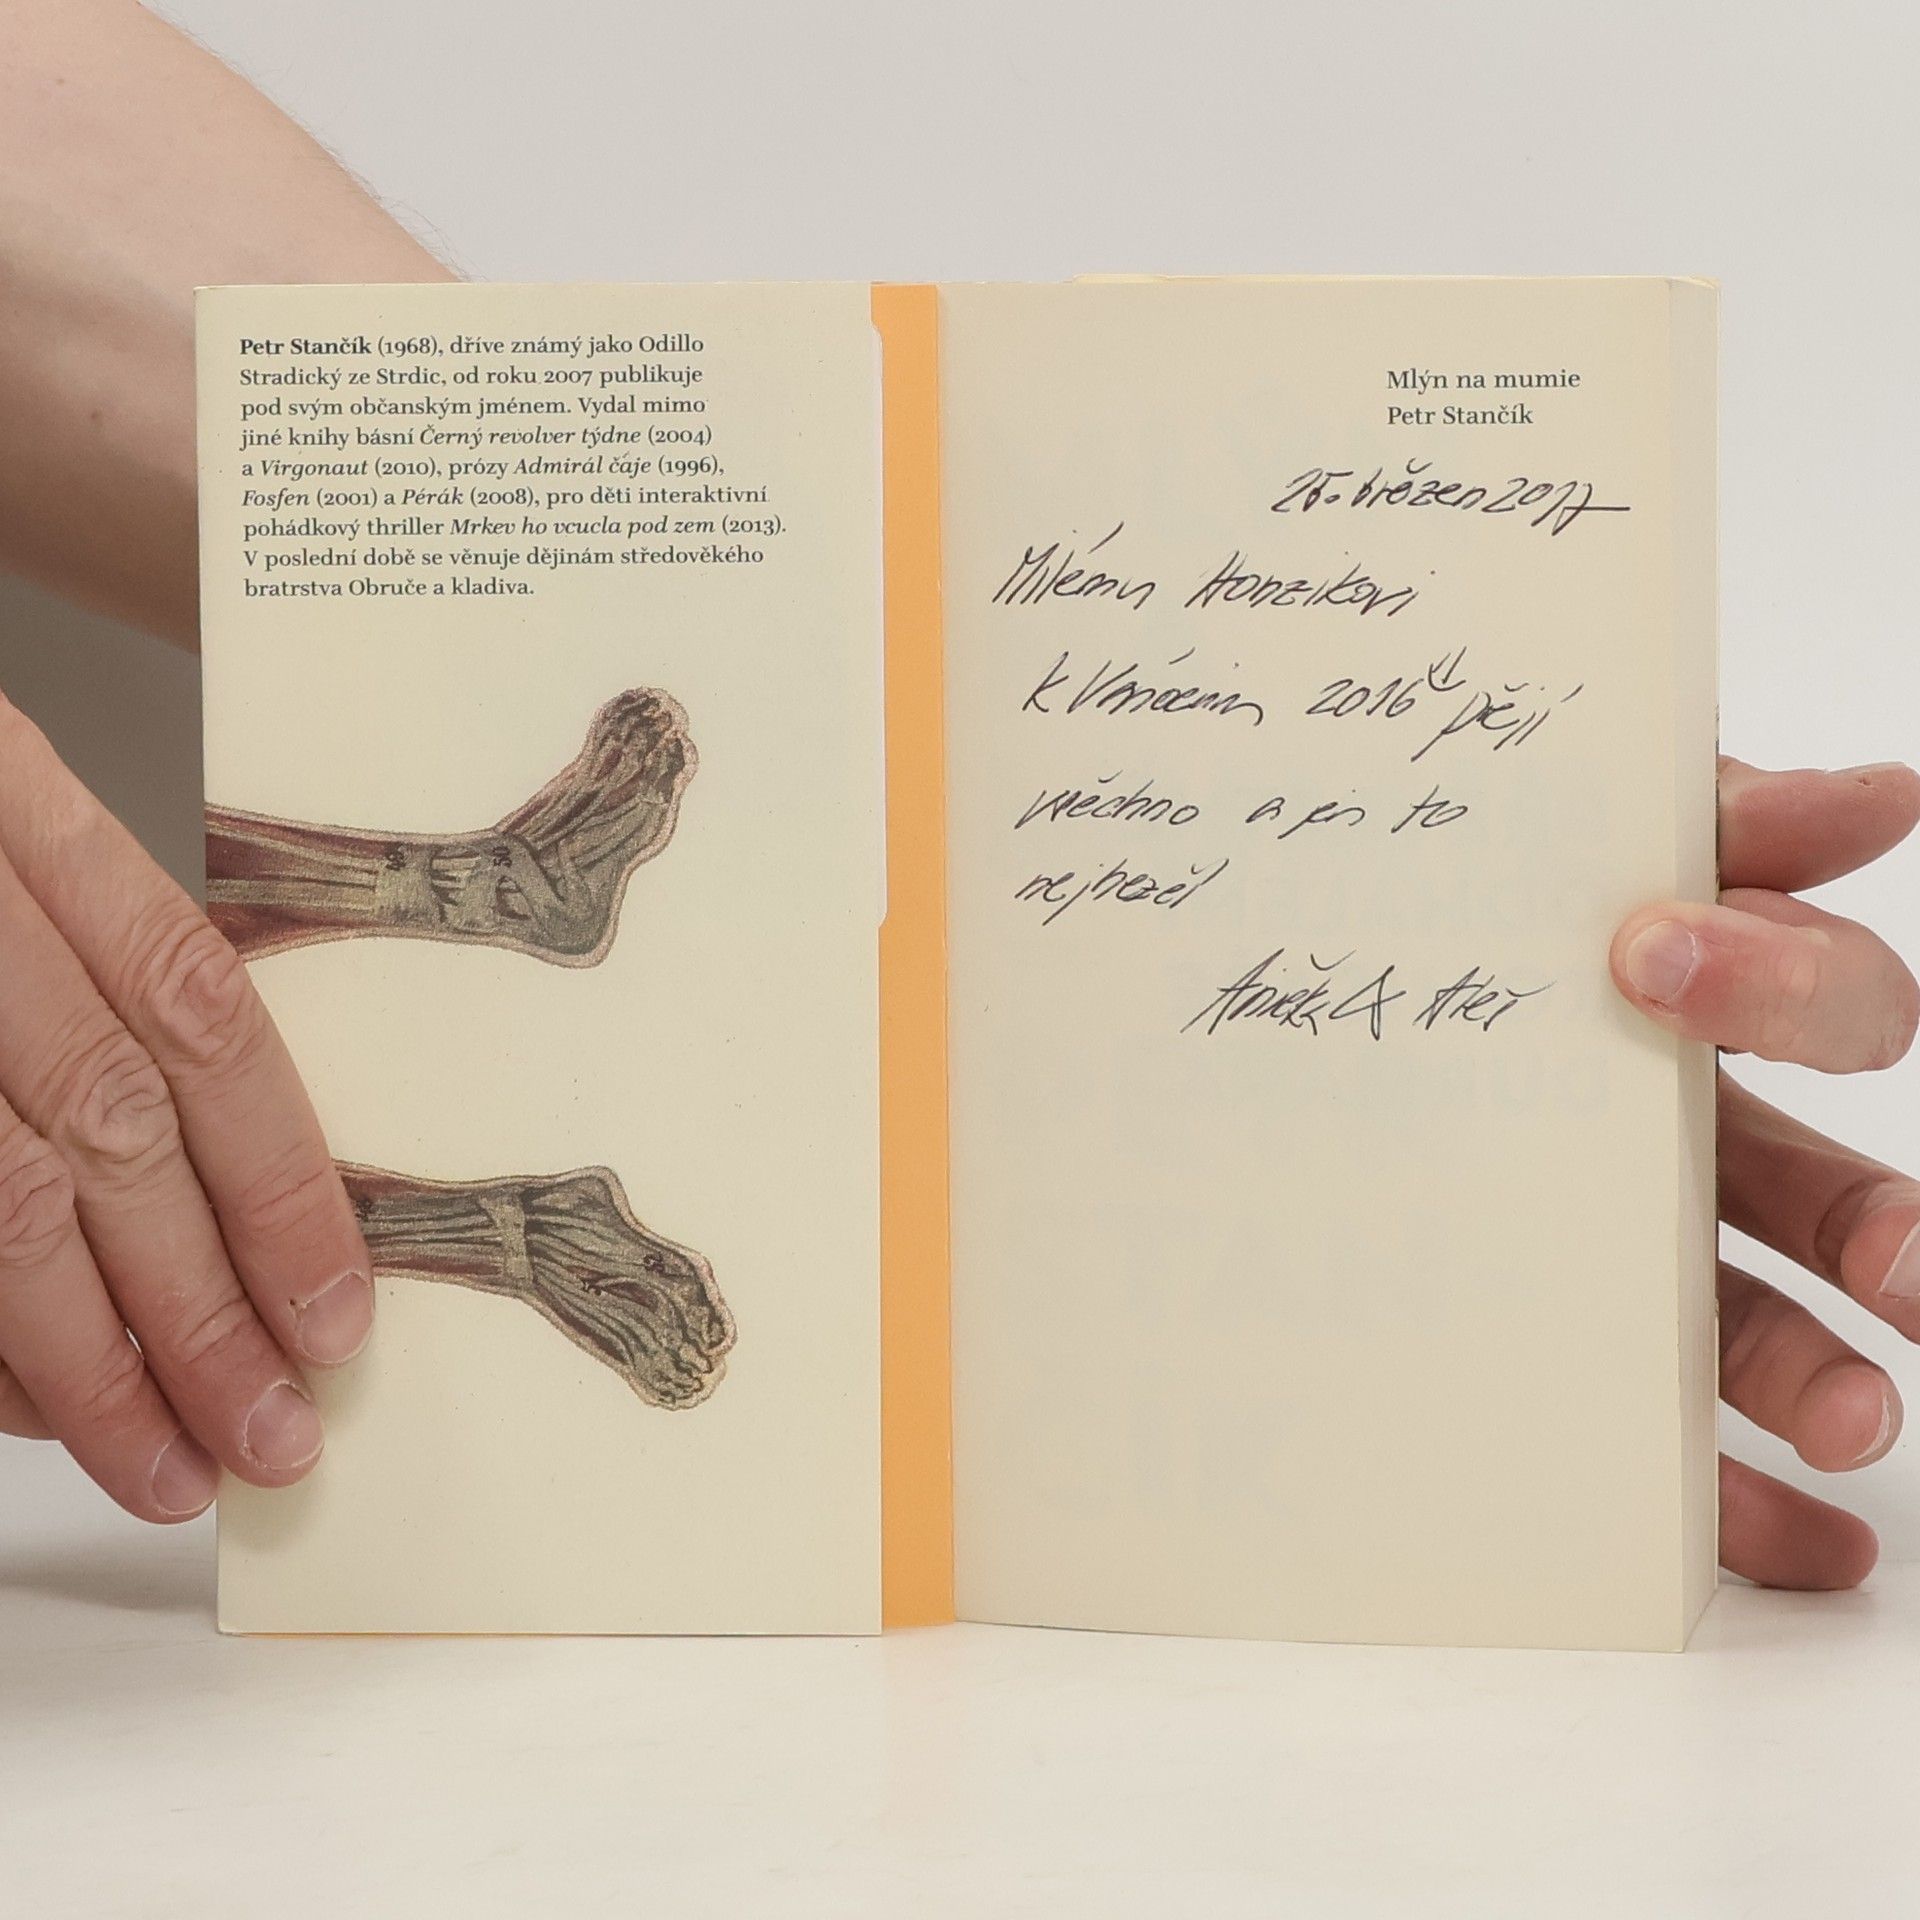 Petr Stančík (1968), dříve známý jako Odillo
Stradický ze Strdic, od roku 2007 publikuje
pod svým občanským jménem. Vydal mimo
jiné knihy básní Černý revolver týdne (2004)
a Virgonaut (2010), prózy Admirál čaje (1996),
Fosfen (2001) a Pérák (2008), pro děti interaktivní
pohádkový thriller Mrkev ho vcucla pod zem (2013).
V poslední době se věnuje dějinám středověkého
bratrstva Obruče a kladiva.
49
50
52
Mlýn na mumie
Petr Stančík
25. březen 2017
Milému Honzikovi
k Vánocům 2016 přejí
všechno a jen to
nejhezčí
Aleš